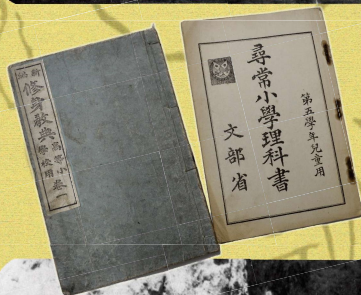 新編
修身教典
高等小
學校用
卷一
第五學年兒童用
尋常小學理科書
文部省